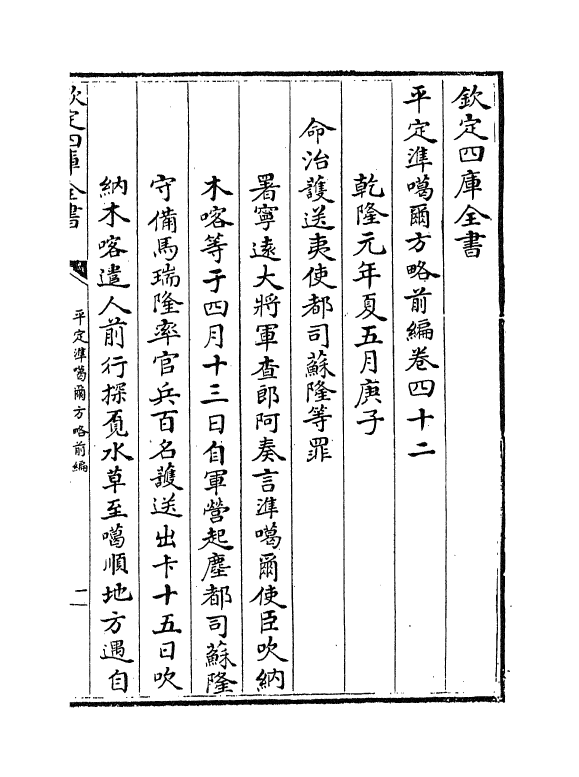 欽定四庫全書
平定準噶爾方略前編卷四十二
乾隆元年夏五月庚子
命治護送夷使都司蘇隆等罪
署寧遠大將軍查郎阿奏言準噶爾使臣吹納
木喀等于四月十三日自軍營起塵都司蘇隆
守備馬瑞隆率官兵百名護送出卡十五日吹
納木喀遣人前行探覓水草至噶順地方遇自
欽定四庫全書
平定準噶爾方略前編